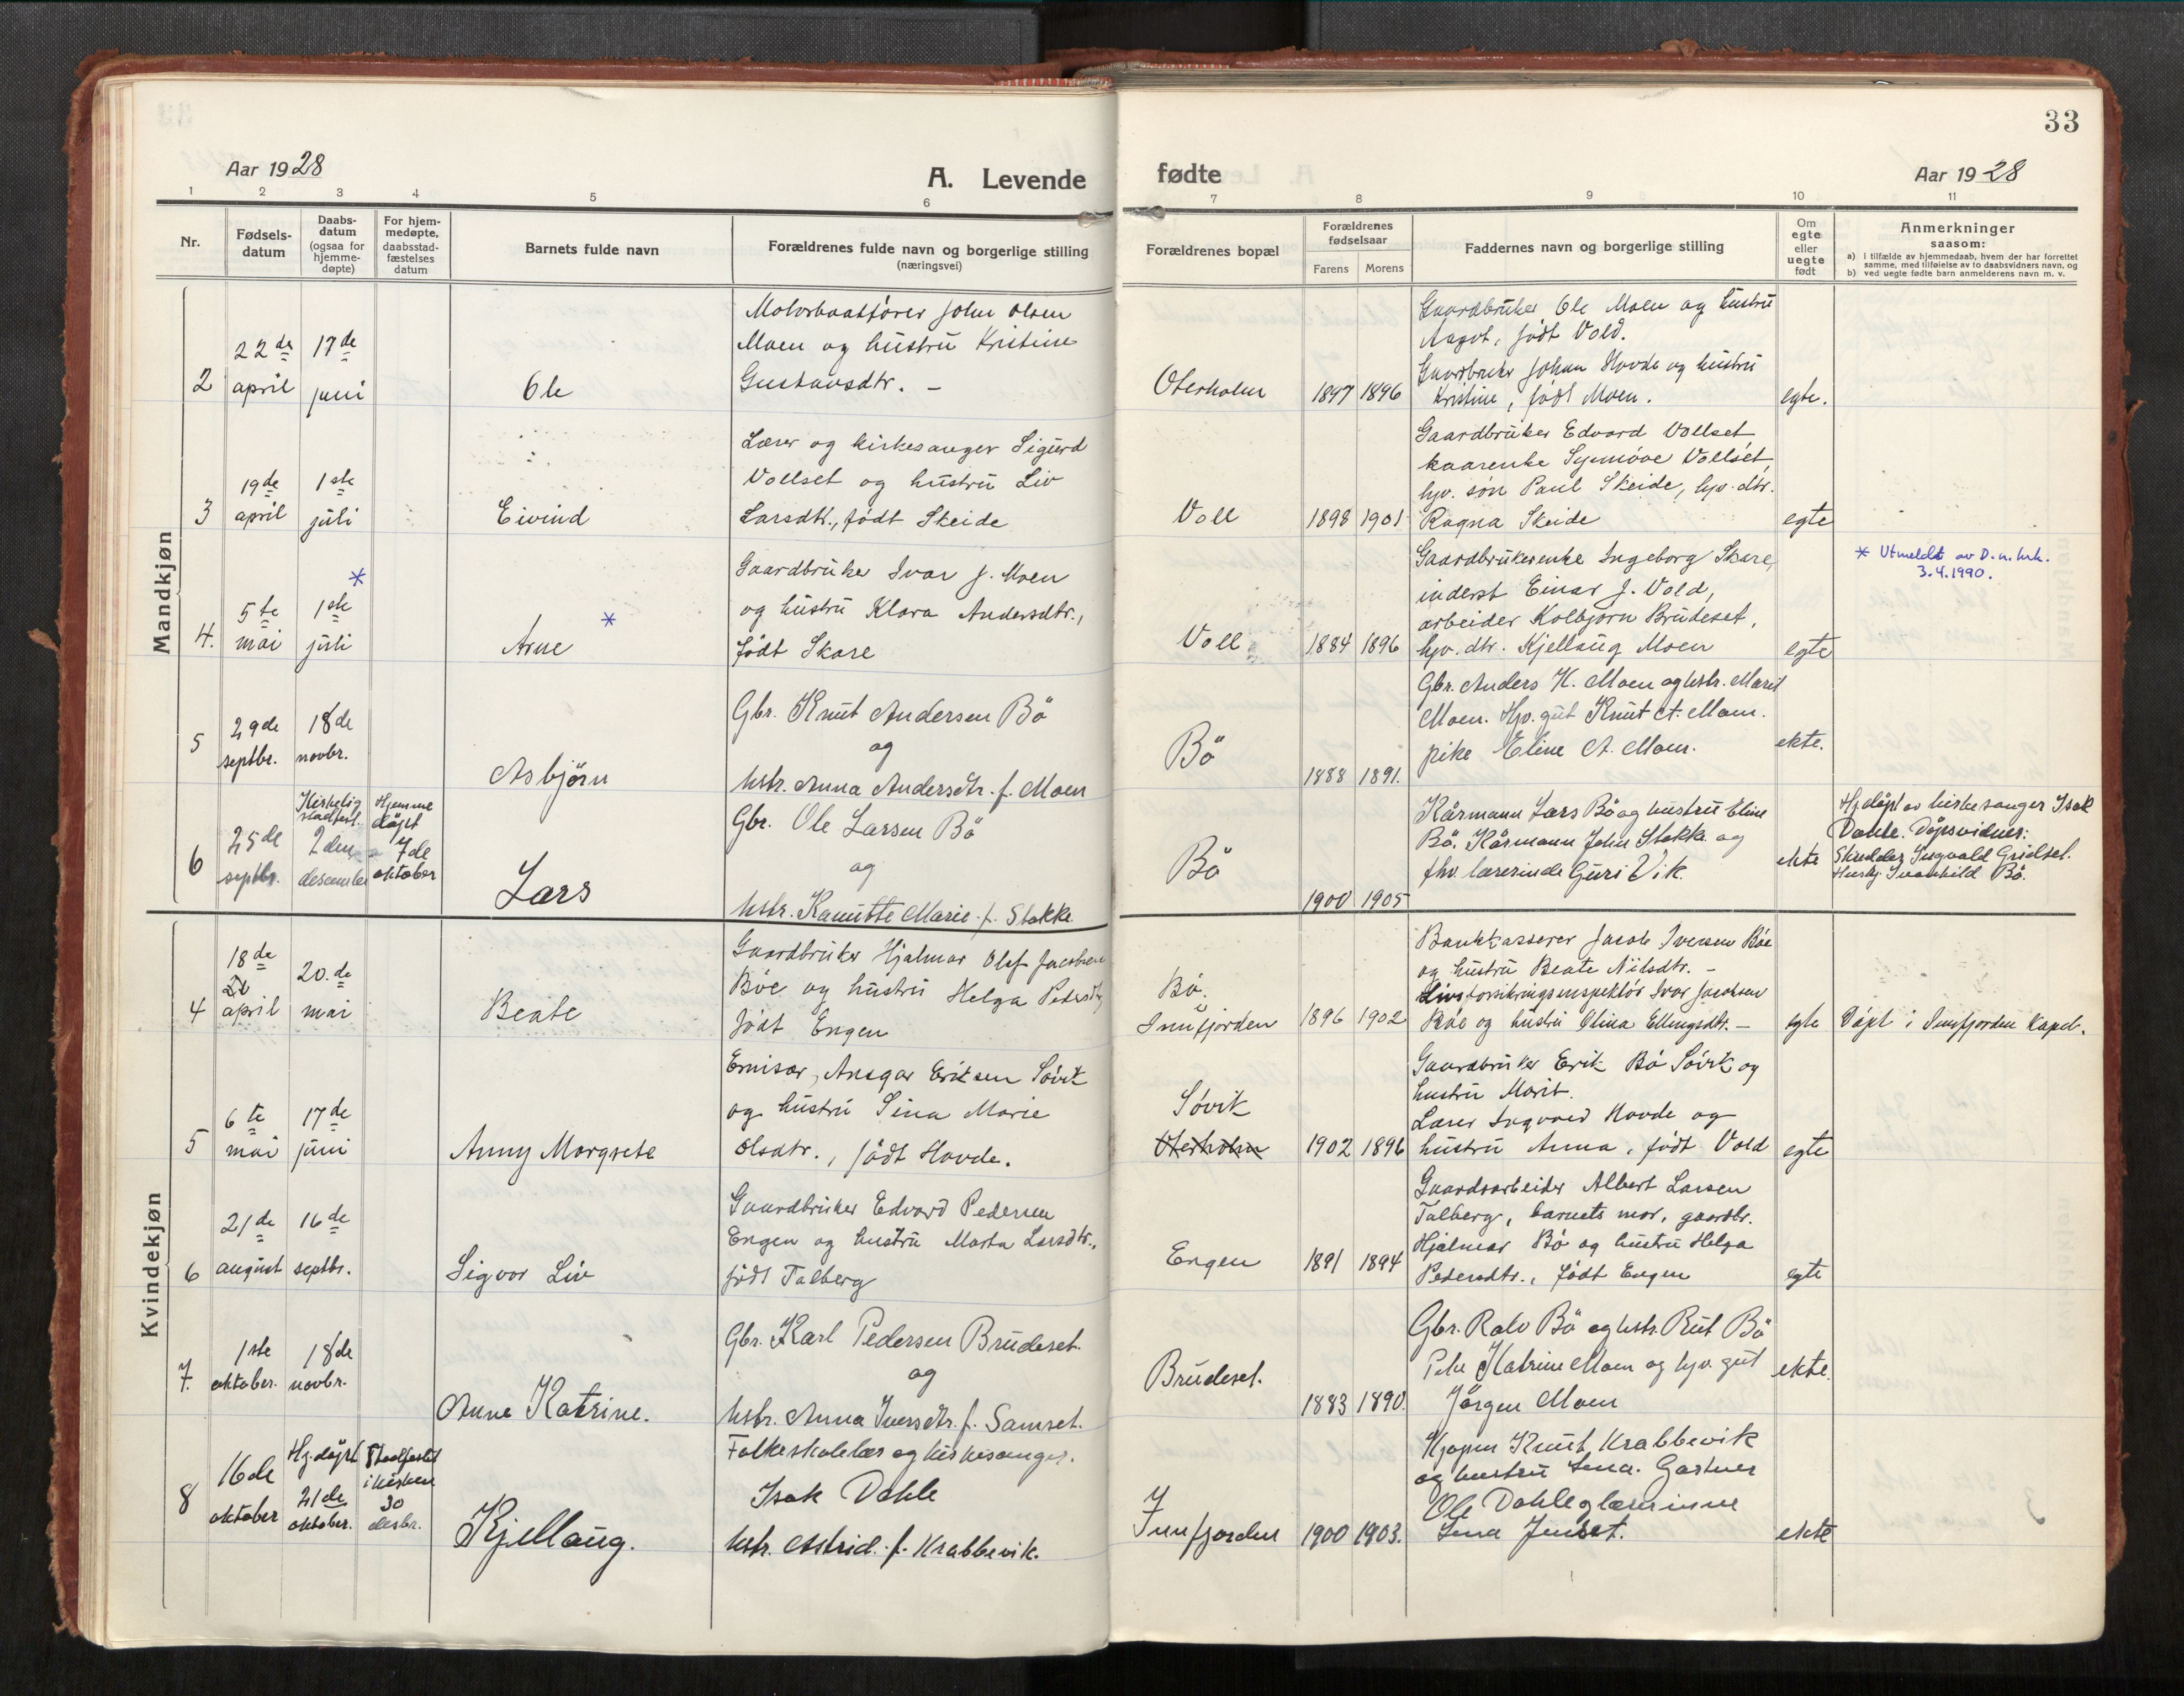 33
Aar 1928
A. Levende
fødte
Aar 1928
1 2 3 4 5 6 7 8 9 10 11
Nr.
Fødsels-
datum
Daabs-
datum
(ogsaa for
hjemme-
døpte)
For hjem-
medøpte,
daabsstad-
fæstelses
datum
Barnets fulde navn
Forældrenes fulde navn og borgerlige stilling
(næringsvei)
Forældrenes bopæl
Forældrenes
fødselsaar
Farens Morens
Faddernes navn og borgerlige stilling
Om
egte
eller
uegte
født
Anmerkninger
saasom:
a) i tilfælde av hjemmedaab, hvem der har forrettet
samme, med tilføielse av to daabsvidners navn, og
b) ved uegte fødte barn anmelderens navn m. v.
Mandkjøn
2
22de
april
17de
juni
Ole
Motorbaatfører John Olsen
Moen og hustru Kristine
Gustavsdtr. –
Oterholm
1897 1896
Gaardbruker Ole Moen og hustru
Aagot, født Vold.
Gaardbruker Johan Hovde og hustru
Kristine, født Moen.
egte.
3
19de
april
1ste
juli
Eivind
Lærer og kirkesanger Sigurd
Vollset og hustru Liv
Larsdtr., født Skeide
Voll
1898 1901
Gaardbruker Edvard Vollset,
kaarenke Synnøve Vollset,
hjv. søn Paul Skeide, hjv. dtr.
Ragna Skeide
egte
4.
5te
mai
1ste
juli
*
Arne
*
Gaardbruker Ivar J. Moen
og hustru Klara Andersdtr.,
født Skare
Voll
1884 1896
Gaardbrukerenke Ingeborg Skare,
inderst Einar J. Vold,
arbeider Kolbjørn Brudeset,
hjv. dtr. Kjellaug Moen
egte
* Utmeldt av D.n.krk.
3.4.1990.
5
29de
septbr.
18de
novbr.
Asbjørn
Gbr. Knut Andersen Bö
og
hstr. Anna Andersdtr. f. Moen
Bö
1888 1891.
Gbr. Anders K. Moen og hstr. Marit
Moen. Hjv. gut Knut A. Moen.
pike Eline A. Moen.
ekte.
6
25de
septbr.
Kirkelig
stadfest.
2den
desember
Hjemme
døpt
7de
oktober
Lars
Gbr. Ole Larsen Bö
og
hstr. Kanutte Marie f. Stokke
Bö
1900 1905
Kårmann Lars Bö og hustru Eline
Bö. Kårmann John Stokke og
fhv. lærerinde Guri Vik.
ekte
Hj.døpt av kirkesanger Isak
Dahle. Døpsvidner:
Skredder Ingvald Gridset.
Husbj. Svanhild Bö.
Kvindekjøn
4
18de
april
20.de
mai
Beate
Gaardbruker Hjalmar Olaf Jacobsen
Böe og hustru Helga Pedersdtr.,
født Engen
Bö.
Innfjorden
1896 1902
Bankkasserer Jacob Iversen Böe
og hustru Beate Nilsdtr. –
Livsforsikringsinspektør Ivar Jacobsen
Böe og hustru Olina Ellingsdtr. –
egte
Döpt i Innfjorden Kapel.
5
6te
mai
17de
juni
Anny Margrete
Emisær, Ansgar Eriksen Søvik
og hustru Sina Marie
Olsdtr., født Hovde.
Søvik
Oterholm
1902 1896
Gaardbruker Erik Bö Søvik og
hustru Marit.
Lærer Ingvald Hovde og
hustru Anna, født Vold
egte
6
21de
august
16de
septbr.
Sigvor Liv
Gaardbruker Edvard Pedersen
Engen og hustru Marta Larsdtr.,
født Talberg
Engen
1891 1894
Gaardsarbeider Albert Larsen
Talberg, barnets mor, gaardbr.
Hjalmar Bö og hustru Helga
Pedersdtr., født Engen
egte
7.
1ste
oktober.
18de
novbr.
Anne Katrine.
Gbr. Karl Pedersen Brudeset.
og
hstr. Anna Iversdtr. f. Samset.
Brudeset.
1883 1890.
Gbr. Ralv Bö og hstr. Rut Bö
Pike Katrine Moen og hjv. gut
Jørgen Moen
ekte.
8
16de
oktober
Hj.døpt
21de
oktober.
Stadfestet
i kirken
30
desbr.
Kjellaug.
Folkeskolelær og kirkesanger.
Isak Dahle
hstr. Astrid f. Krabbevik.
Innfjorden
1900 1903.
Kjøpm Knut Krabbevik
og hustru Lena. Gartner
Ole Dahle og lærerinne
Lena Jenset.
ekte